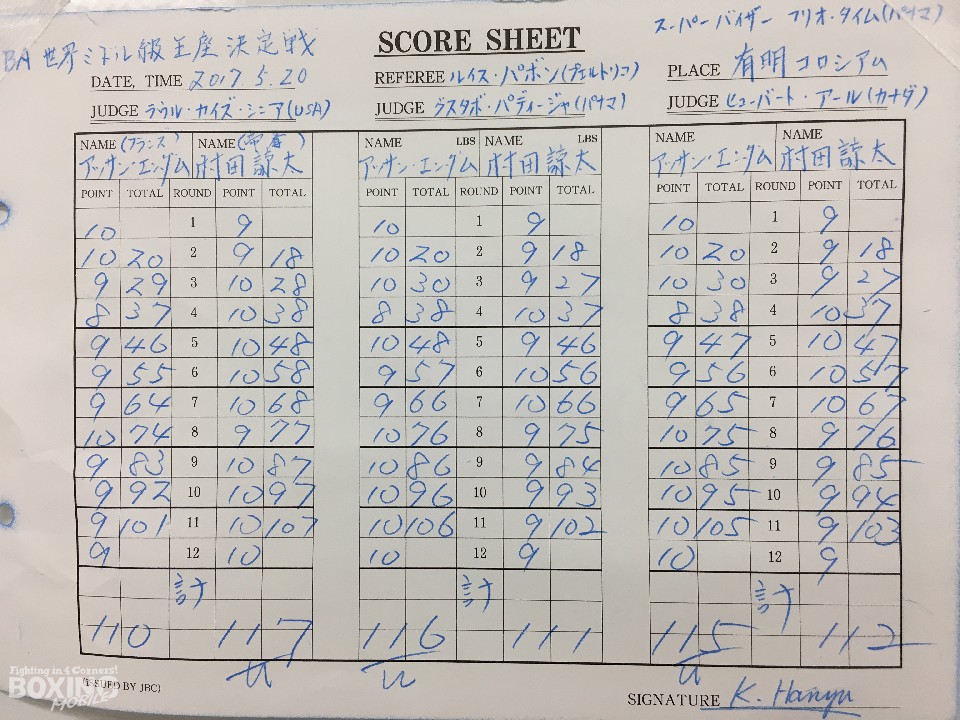 BA 世界ミドル級王座決定戦
SCORE SHEET
スーパーバイザー フリオ・タイム(パナマ)
DATE, TIME 2017.5.20
REFEREE ルイス・パボン(プエルトリコ)
PLACE 有明コロシアム
JUDGE ラウル・カイズ・シニア(USA)
JUDGE グスタボ・パディージャ(パナマ)
JUDGE ヒューバート・アール(カナダ)
NAME (フランス) NAME (帝拳) NAME LBS NAME LBS NAME NAME
アッサン・エンダム 村田諒太 アッサン・エンダム 村田諒太 アッサン・エンダム 村田諒太
POINT TOTAL ROUND POINT TOTAL POINT TOTAL ROUND POINT TOTAL POINT TOTAL ROUND POINT TOTAL
10 1 9 10 1 9 10 1 9
10 20 2 9 18 10 20 2 9 18 10 20 2 9 18
9 29 3 10 28 10 30 3 9 27 10 30 3 9 27
8 37 4 10 38 8 38 4 10 37 8 38 4 10 37
9 46 5 10 48 10 48 5 9 46 9 47 5 10 47
9 55 6 10 58 9 57 6 10 56 9 56 6 10 57
9 64 7 10 68 9 66 7 10 66 9 65 7 10 67
10 74 8 9 77 10 76 8 9 75 10 75 8 9 76
9 83 9 10 87 10 86 9 9 84 10 85 9 9 85
9 92 10 10 97 10 96 10 9 93 10 95 10 9 94
9 101 11 10 107 10 106 11 9 102 10 105 11 9 103
9 12 10 10 12 9 10 12 9
計 計 計
110 117 116 111 115 112
Fighting in 4 Corners!
BOXING
MOBILE
(ISSUED BY JBC)
SIGNATURE K. Hanyu